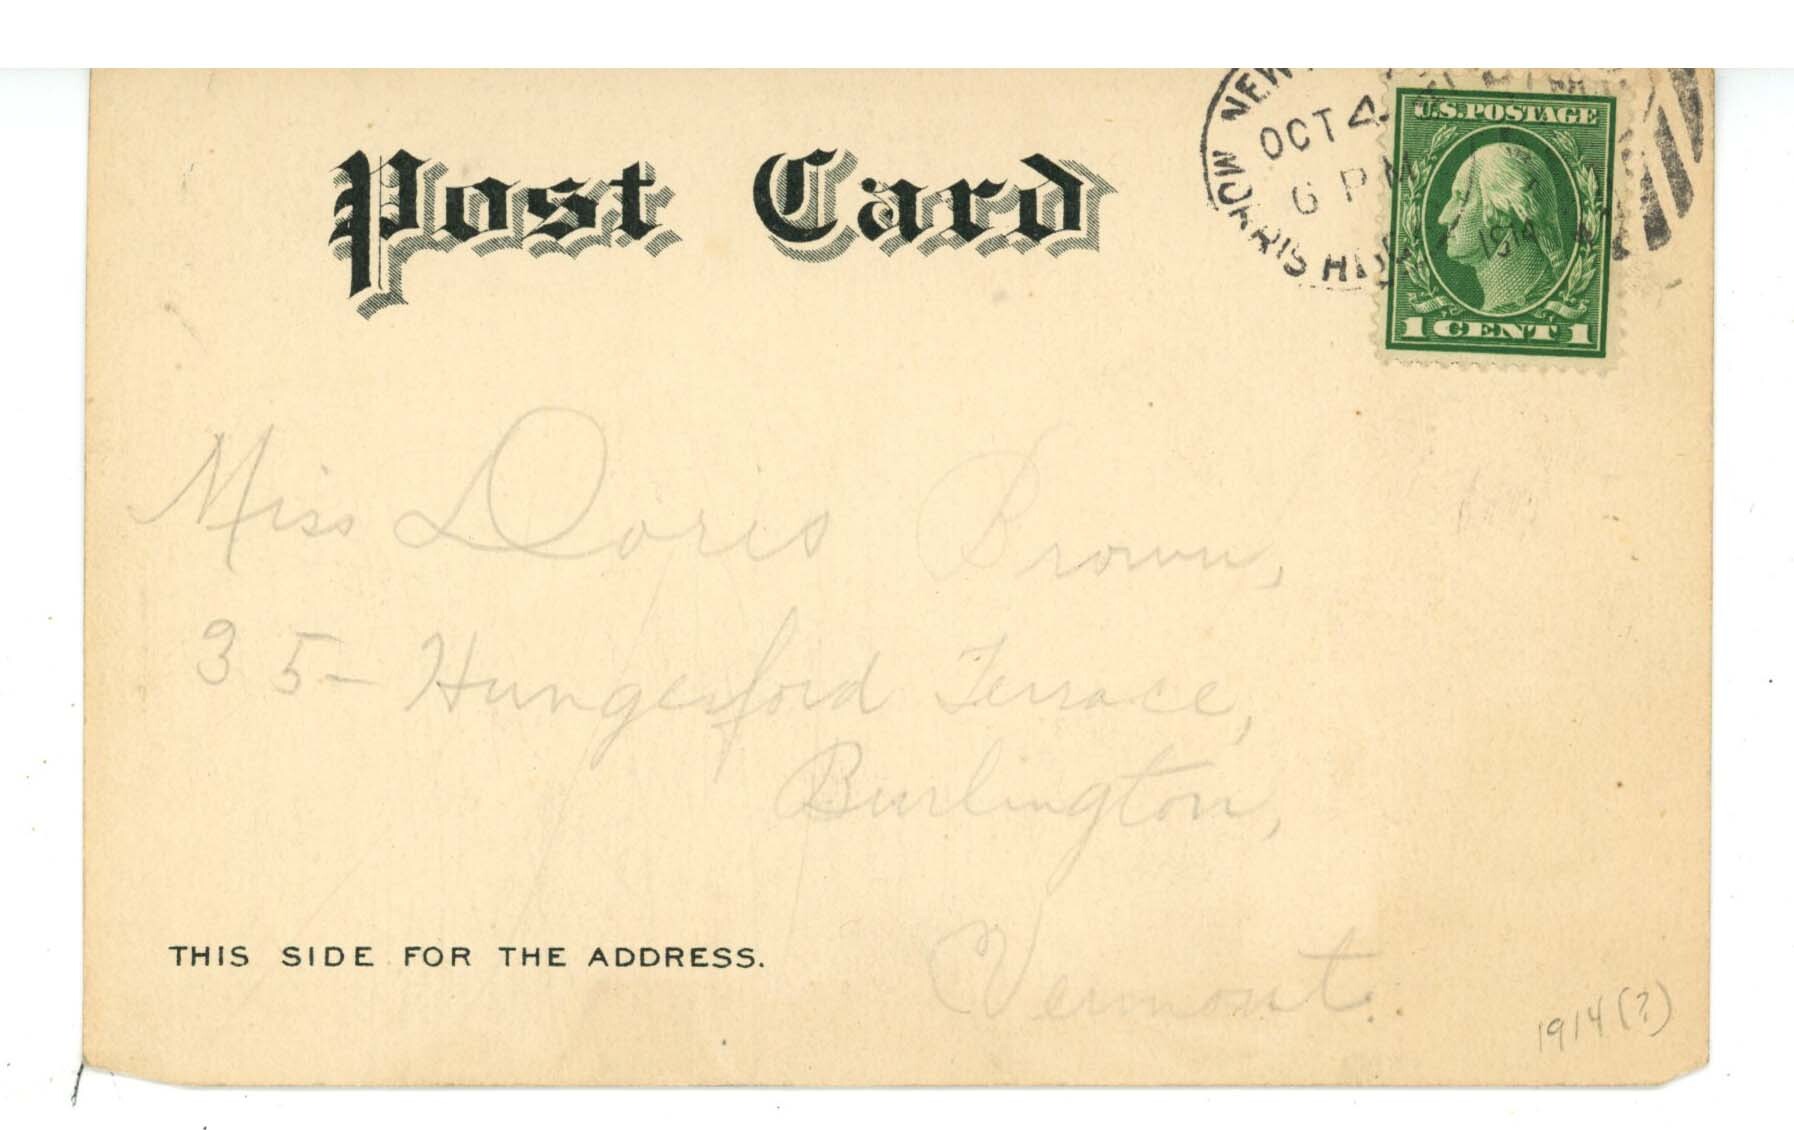 NEW
OCT 4
6 PM
1914
MORRIS HEI
U.S. POSTAGE
1 CENT 1
Post Card
Miss Doris Brown,
35- Hungerford Terrace,
Burlington,
Vermont.
THIS SIDE FOR THE ADDRESS.
1914(?)